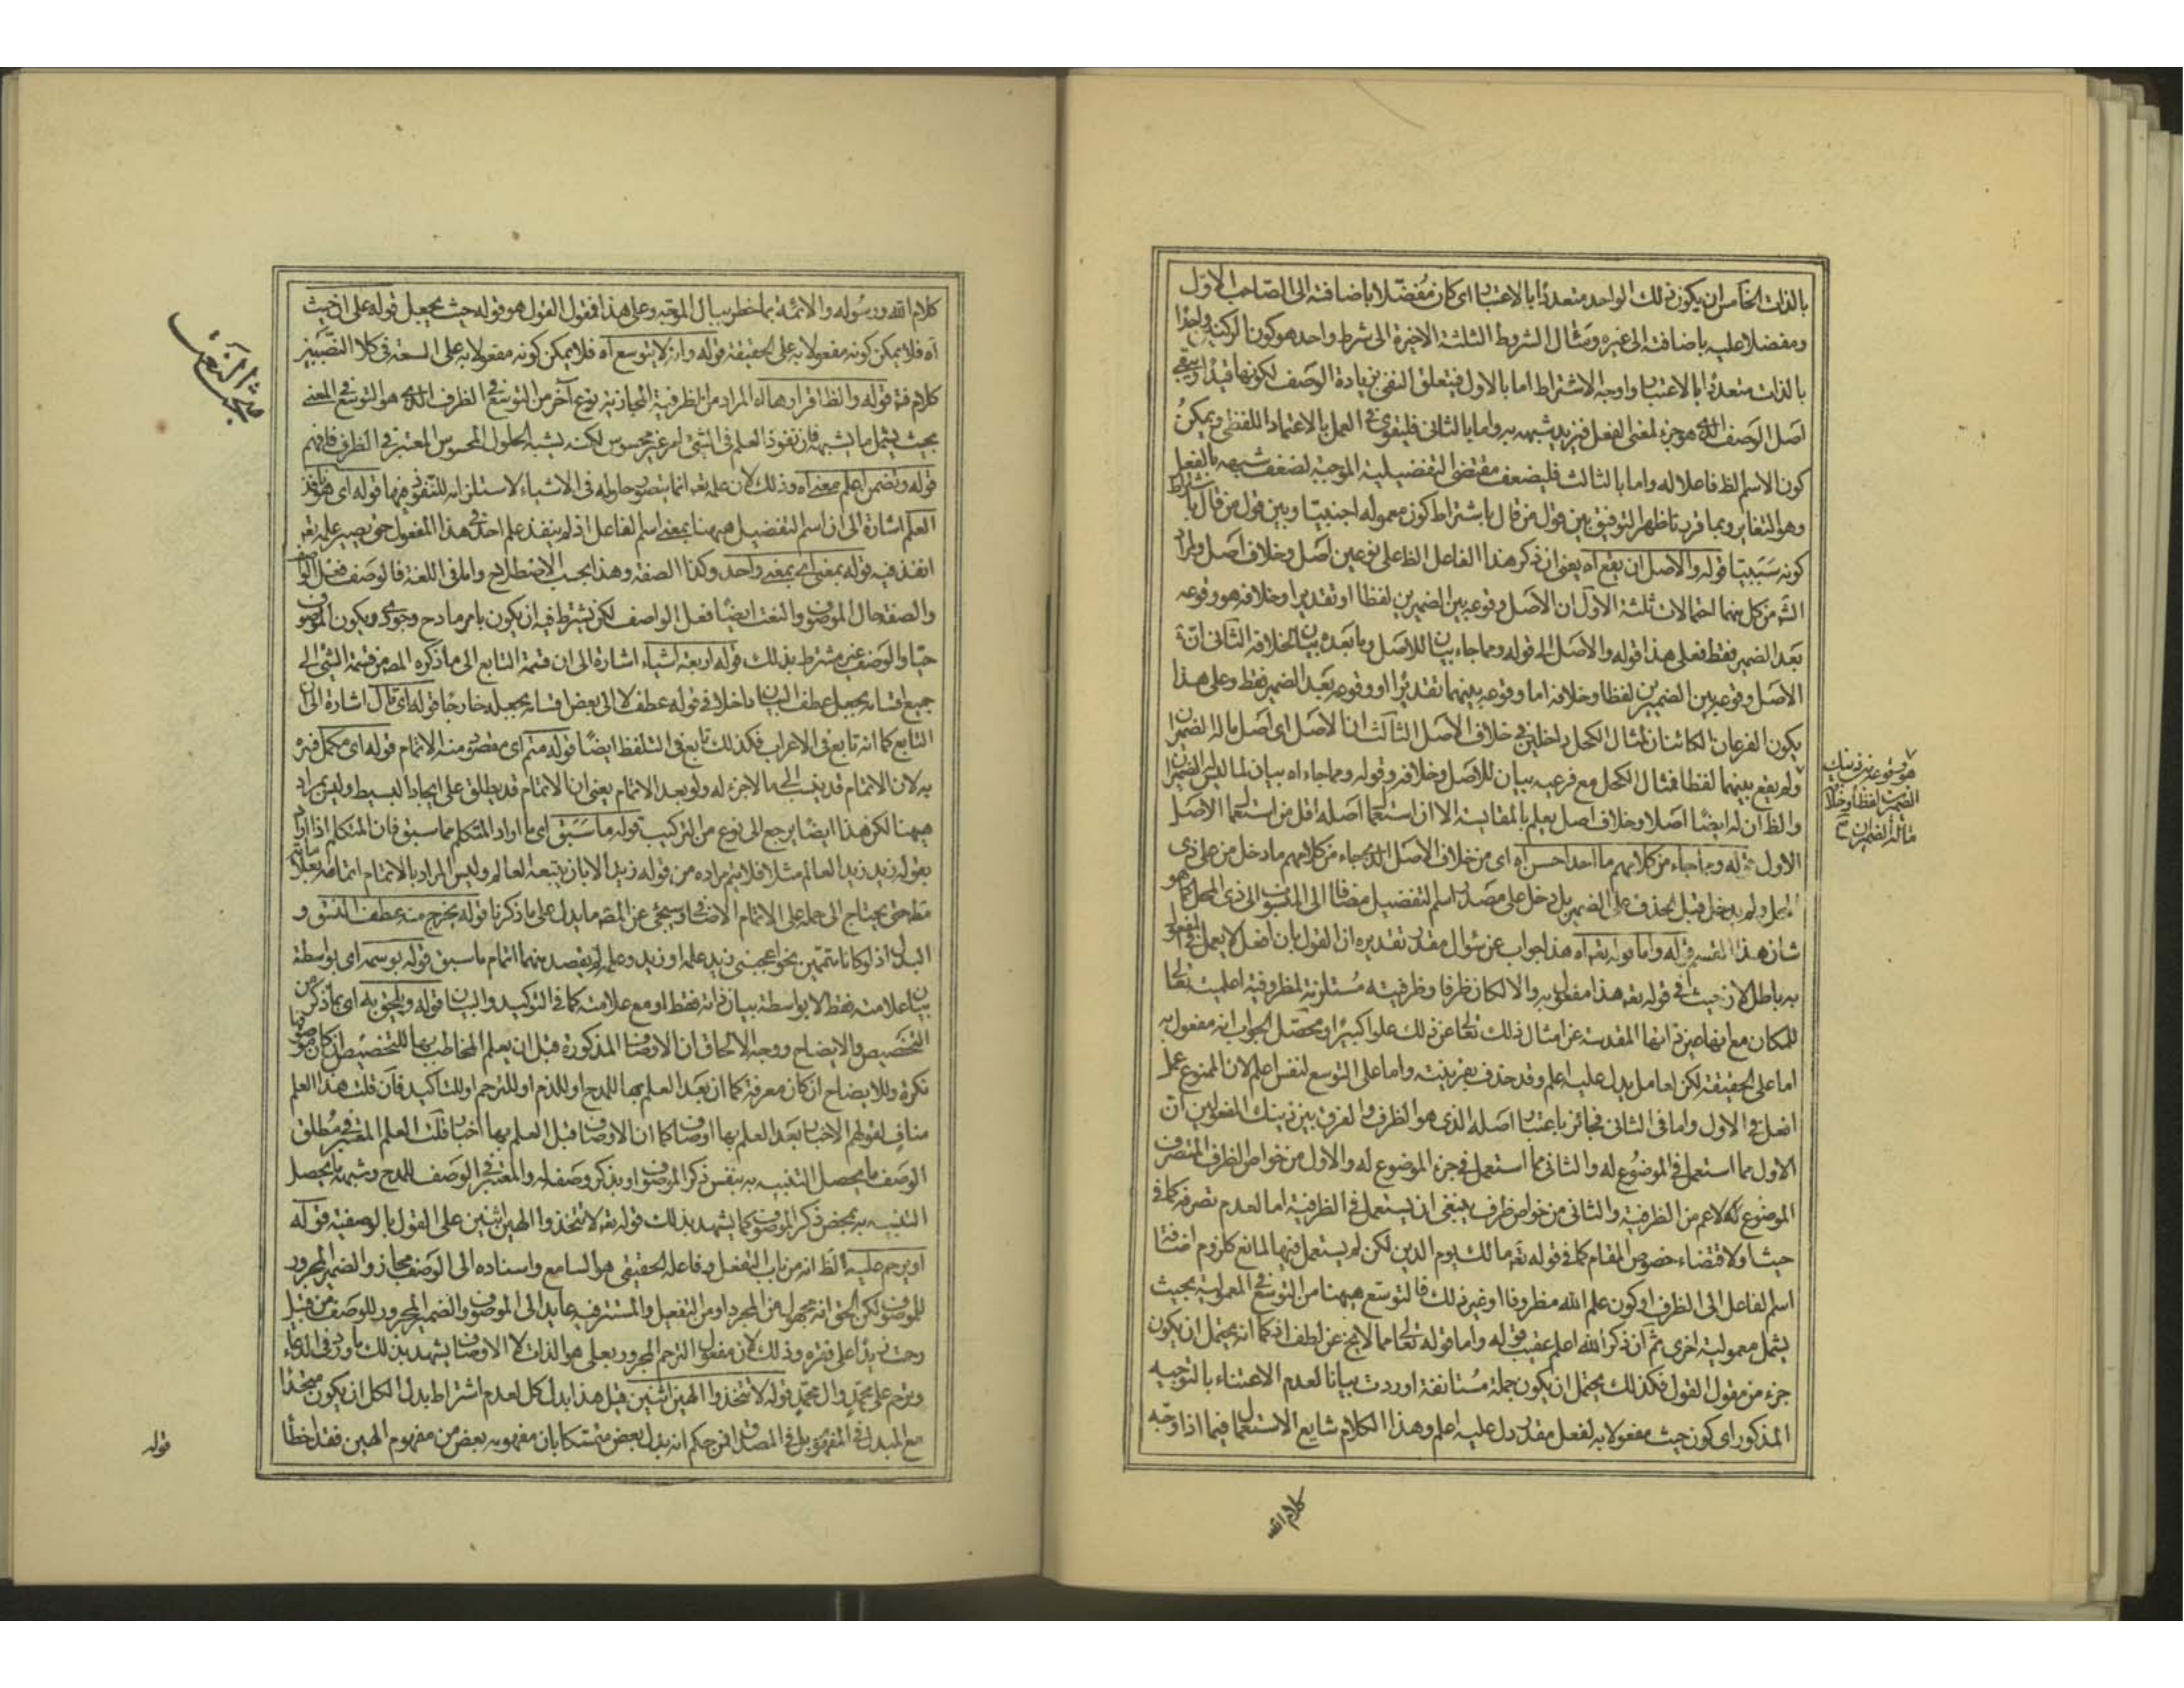 بالذات الخامس ان يكون ذلك الواحد متعددا بالاعتبار اى كان مفضلا باضافته الى الصاحب الاول
ومفضلا عليه باضافته الى غيره ومثال الشروط الثلثة الاخيرة الى شرط واحد هو كون الركنه واحدا
بالذات متعددا بالاعتبار واوجه الاشتراط اما بالاول فيتعلق النفى بزيادة الوصف لكونها قيدا ويبقى
اصل الوصف الذى هو جزء لمعنى الفعل فيزيد شبهه به واما بالثانى فليقوى فى العمل بالاعتماد اللفظى ويمكن
كون الاسم الظ فاعلا له واما بالثالث فليضعف مقتضى التفضيلية الموجبة لضعف شبهه بالفعل
وهو التغاير وبما قررنا ظهر التوفيق بين قول من قال باشتراط كون معموله اجنبيا وبين قول من قال باشتراط
كونه سببيا قوله والاصل ان يقع آه يعنى ان ذكر هذا الفاعل الظ على نوعين اصل وخلاف اصل والمراد
الشه من كل بينهما احتمالات ثلثة الاول ان الاصل وقوعه بين الضميرين لفظا او تقديرا وخلافه هو وقوعه
بعد الضمير فقط فعلى هذا قوله والاصل الى قوله ومما جاء بيان للاصل وما بعده بيان لخلافه الثانى ان
الاصل وقوعه بين الضميرين لفظا وخلافه اما وقوعه بينهما تقديرا او وقوعه بعد الضمير فقط وعلى هذا
يكون الفرعان الكائنان لمثال الكحل داخلين فى خلاف الاصل الثالث ان الاصل اى اصل ما له الضميران
ولم يقع بينهما لفظا فمثال الكحل مع فرعيه بيان للاصل وخلافه وقوله ومما جاء اه بيان لما ليس الضميران
والظ ان له ايضا اصلا وخلاف اصل يعلم بالمقايسة الا ان استعمال اصله اقل من استعمال الاصل
الاول قوله ومما جاء من كلامهم ما احد احسن آه اى من خلاف الاصل الذى جاء من كلامهم ما دخل من على ذى
المحل ولم يدخل قبل الحذف على الضمير بل دخل على مصدر اسم التفضيل مضافا الى المنسوب الى ذى المحل كما هو
شان هذا القسم قوله واما قوله تعه آه هذا جواب عن سؤال مقدر تقديره ان القول بان افعل لا يعمل فى المفعول
به باطل لان حيث فى قوله تعه هذا مفعول به والا لكان ظرفا وظرفيته مستلزمة لمظروفية اعلميته تعالى
للمكان مع انها عين ذاتها المقدسة عن امثال ذلك تعالى عن ذلك علوا كبيرا ومحصل الجواب انه مفعول به
اما على الحقيقة لكن لعامل يدل عليه اعلم وقد حذف بقرينته واما على التوسع لنفس اعلم لان الممنوع عمل
افعل فى الاول واما فى الثانى فجائز باعتبار اصله الذى هو الظرف والفرق بين ذينك المفعولين ان
الاول مما استعمل فى الموضوع له والثانى مما استعمل فى جزء الموضوع له والاول من خواص الظرف المتصرف
الموضوع له لاعم من الظرفية والثانى من خواص ظرف ينبغى ان يستعمل فى الظرفية اما لعدم تصرفه كما فى
حيث او لاقتضاء خصوص المقام كما فى قوله تعه مالك يوم الدين لكن لم يستعمل فيها لمانع كلزوم اضافة
اسم الفاعل الى الظرف او كون علم الله مظروفا او غير ذلك فالتوسع ههنا من التوسع فى المعمولية بحيث
يشمل معمولية اخرى ثم ان ذكر الله اعلم عقيب قوله واما قوله تعالى مما لا يخ عن لطف اذ كما انه يحتمل ان يكون
جزء من مقول القول فكذلك يحتمل ان يكون جملة مستانفة اوردت بيانا لعدم الاعتناء بالتوجيه
المذكور اى كون حيث مفعولا به لفعل مقدر دل عليه اعلم وهذا الكلام شايع الاستعمال فيما اذا وجه
كلام الله
هو وقوعه بين ذينك
الضميرين لفظا وخلا
ما له الضميران
كلام الله ورسوله والائمة بما خطر ببال الموجه وعلى هذا فمقول القول هو قوله حيث يجعل قوله على ان حيث
آه فلا يمكن كونه مفعولا به على الحقيقة قوله وان لا يتوسع آه فلا يمكن كونه مفعولا به على السعة فى كلا النصبين
كلام فة قوله والظ اقرارها اه المراد من الظرفية المجازية نوع آخر من التوسع فى الظرف الذى هو التوسع فى المعنى
بحيث يشمل ما يشبهه فان نفوذ العلم فى الشئ امر غير محسوس لكنه يشبه الحلول المحسوس المعتبر فى الظرف فافهم
قوله وتضمن اعلم معنى آه وذلك لان علمه تعه انما يتصور حلوله فى الاشياء لاستلزامه للنفوذ فيها قوله اى هو نافذ
العلم اشارة الى ان اسم التفضيل ههنا بمعنى اسم الفاعل اذ لم ينفذ علم احد فى هذا المفعول حتى يصير علمه تعه
انفذ فيه قوله بمعنى اى بمعنى واحد وكذا الصفة وهذا بحسب الاصطلاح واما فى اللغة فالوصف فعل الواصف
والصفة حال الموصوف والنعت ايضا فعل الواصف لكن يشترط فيه ان يكون بامر مادح وجودى ويكون الموصوف
حيا والوصف غير مشترط بذلك قوله اربعة اشياء اشارة الى ان قسمة التابع الى ما ذكره المص من قسمة الشئ الى
جميع اقسامه بجعل عطف البيان داخلا فى قوله عطف لا الى بعض اقسامه بجعله خارجا قوله اى تال اشارة الى ان
التابع كما انه تابع فى الاعراب فكذلك تابع فى التلفظ ايضا قوله متم اى مقصود منه الاتمام قوله اى مكمل فسره
به لان الاتمام قد ينسب الى ما لا جزء له ولو بعد الاتمام يعنى ان الاتمام قد يطلق على ايجاد البسيط وليس بمراد
ههنا لكن هذا ايضا يرجع الى نوع من التركيب قوله ما سبق اى ما اراد المتكلم مما سبق فان المتكلم اذا اراد
بقوله زيد زيدا العالم مثلا فلا يتم مراده من قوله زيد الا بان يتبعه العالم وليس المراد بالاتمام اتمامه
مط حتى يحتاج الى حمله على الاتمام الاضافى وسيجئ عن المصه ما يدل على ما ذكرنا قوله يخرج منه عطف النسق و
البدل اذ لو كانا متممين نحو اعجبنى زيد علمه او زيد وعلمه لم يقصد منهما اتمام ما سبق قوله بوسمه اى بواسطة
بيان علامته فقط لا بواسطة بيان ذاته فقط او مع علامته كما فى التوكيد والبيان قوله ويلحق به اى بما ذكر من
التخصيص والايضاح ووجه الالحاق ان الاوصاف المذكورة قبل ان يعلم المخاطب بها للتخصيص ان كان موصوفها
نكرة وللايضاح ان كان معرفة كما ان بعد العلم بها للمدح او للذم او للترحم او للتاكيد فان قلت هذا العلم
مناف لقولهم الاخبار بعد العلم بها اوصاف كما ان الاوصاف قبل العلم بها اخبار قلت العلم المعتبر فى مطلق
الوصف ما يحصل التنبيه به بنفس ذكر الموصوف او بذكر وصف له والمعتبر فى الوصف للمدح وشبهه ما يحصل
التنبيه به بمحض ذكر الموصوف كما يشهد بذلك قوله تعه لا تتخذوا الهين اثنين على القول بالوصفية قوله
او يرحم عليه الظ انه من باب التفعل وفاعله الحقيقى هو السامع واسناده الى الوصف مجاز والضمير المجرور
للموصوف لكن الحق انه مجهول من المجرد او من التفعيل والمستتر فيه عايد الى الموصوف والضمير المجرور للوصف من قبيل
رحمت زيدا على فقره وذلك لان مفعول الترحم المجرور بعلى هو الذات لا الاوصاف يشهد بذلك ما ورد فى الدعاء
وترحم على محمد وال محمد قوله لا تتخذوا الهين اثنين قيل هذا بدل كل لعدم اشتراط بدل الكل ان يكون متحدا
مع المبدل فى المفهوم بل فى المصداق فمن حكم انه بدل بعض متمسكا بان مفهومه بعض من مفهوم الهين فقد اخطأ
مبحث النعت
قوله